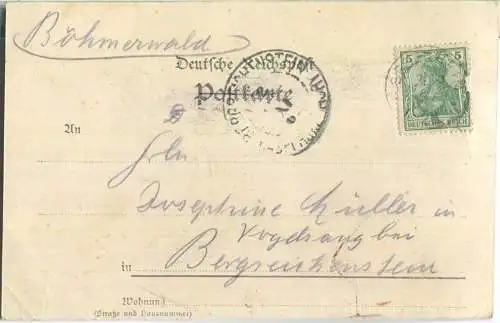 Böhmerwald
Deutsche Reichspost
Postkarte
5 5
DEUTSCHES REICH
An
Frln
Josephine Müller in
Vogelsang bei
in Bergreichenstein
Wohnung
(Straße und Hausnummer)